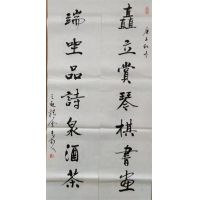 庚子秋
矗立賞琴棋書畫
端坐品詩泉酒茶